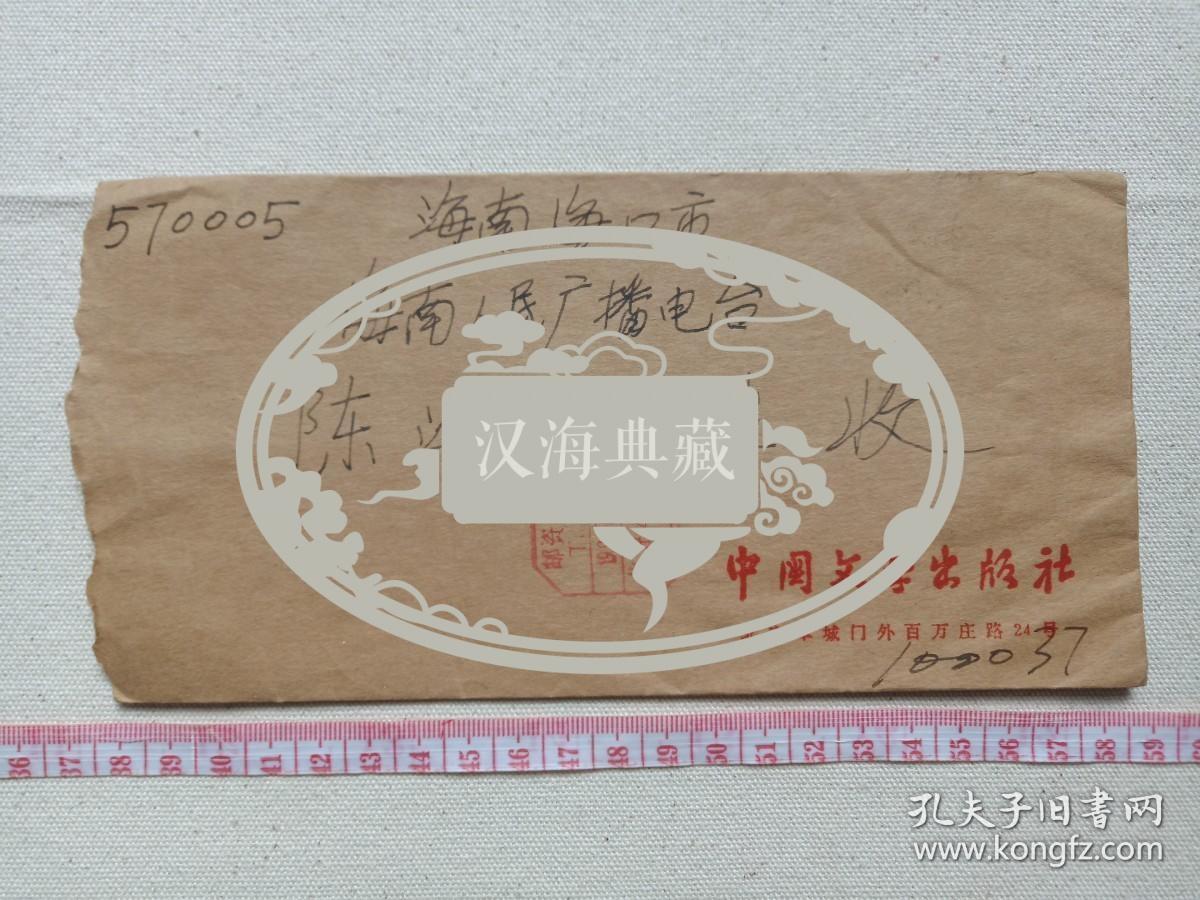 570005 海南海口市
海南人民广播电台
陈 收
汉海典藏
邮资
中国文学出版社
城门外百万庄路24号
100037
36 37 38 39 40 41 42 43 44 45 46 47 48 49 50 51 52 53 54 55 56 57 58 59
孔夫子旧书网
www.kongfz.com